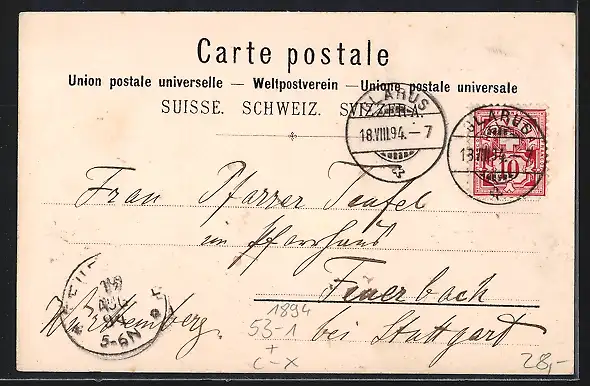 Carte postale
Union postale universelle — Weltpostverein — Unione postale universale
SUISSE. SCHWEIZ. SVIZZERA.
GLARUS
18.VIII.94.–7
GLARUS
18.VIII.94.
10
Frau Pfarrer Teufel
im Pfarrhaus
Feuerbach
Württemberg. bei Stuttgart
FEUERB
19
AUG
94
5-6N
1894
53-1
+
C-X
28,-